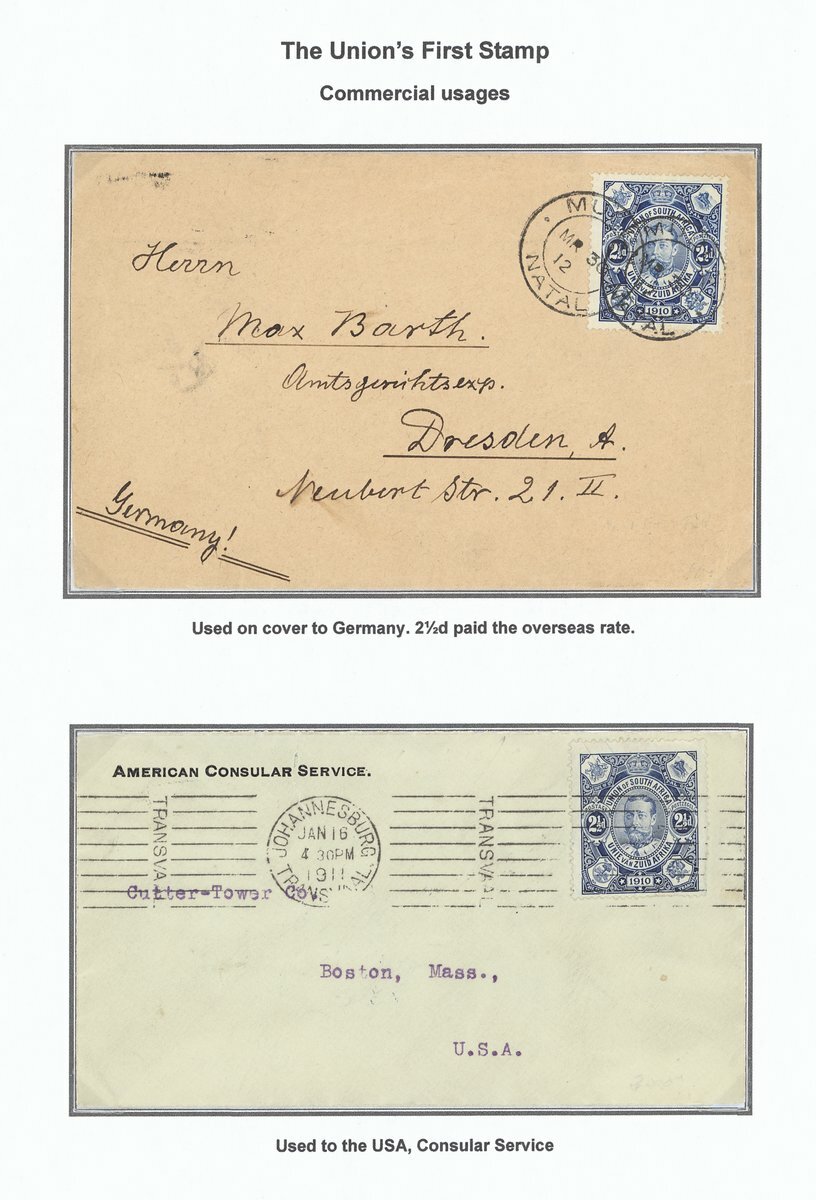 The Union's First Stamp
Commercial usages
MU
MR 30
12
NATAL
MU
NATAL
UNION OF SOUTH AFRICA
2½d 2½d
UNIE VAN ZUID AFRIKA
1910
Herrn
Max Barth.
Amtsgerichtsexp.
Dresden, A.
Neubert Str. 21. II.
Germany!
Used on cover to Germany. 2½d paid the overseas rate.
AMERICAN CONSULAR SERVICE.
TRANSVA
JOHANNESBURG
JAN 16
4 30PM
1911
TRANSVAAL
TRANSVAA
UNION OF SOUTH AFRICA
POSTAGE POSTZEGEL
2½d 2½d
UNIE VAN ZUID AFRIKA
1910
Cutter-Tower Co.
Boston, Mass.,
U.S.A.
Used to the USA, Consular Service